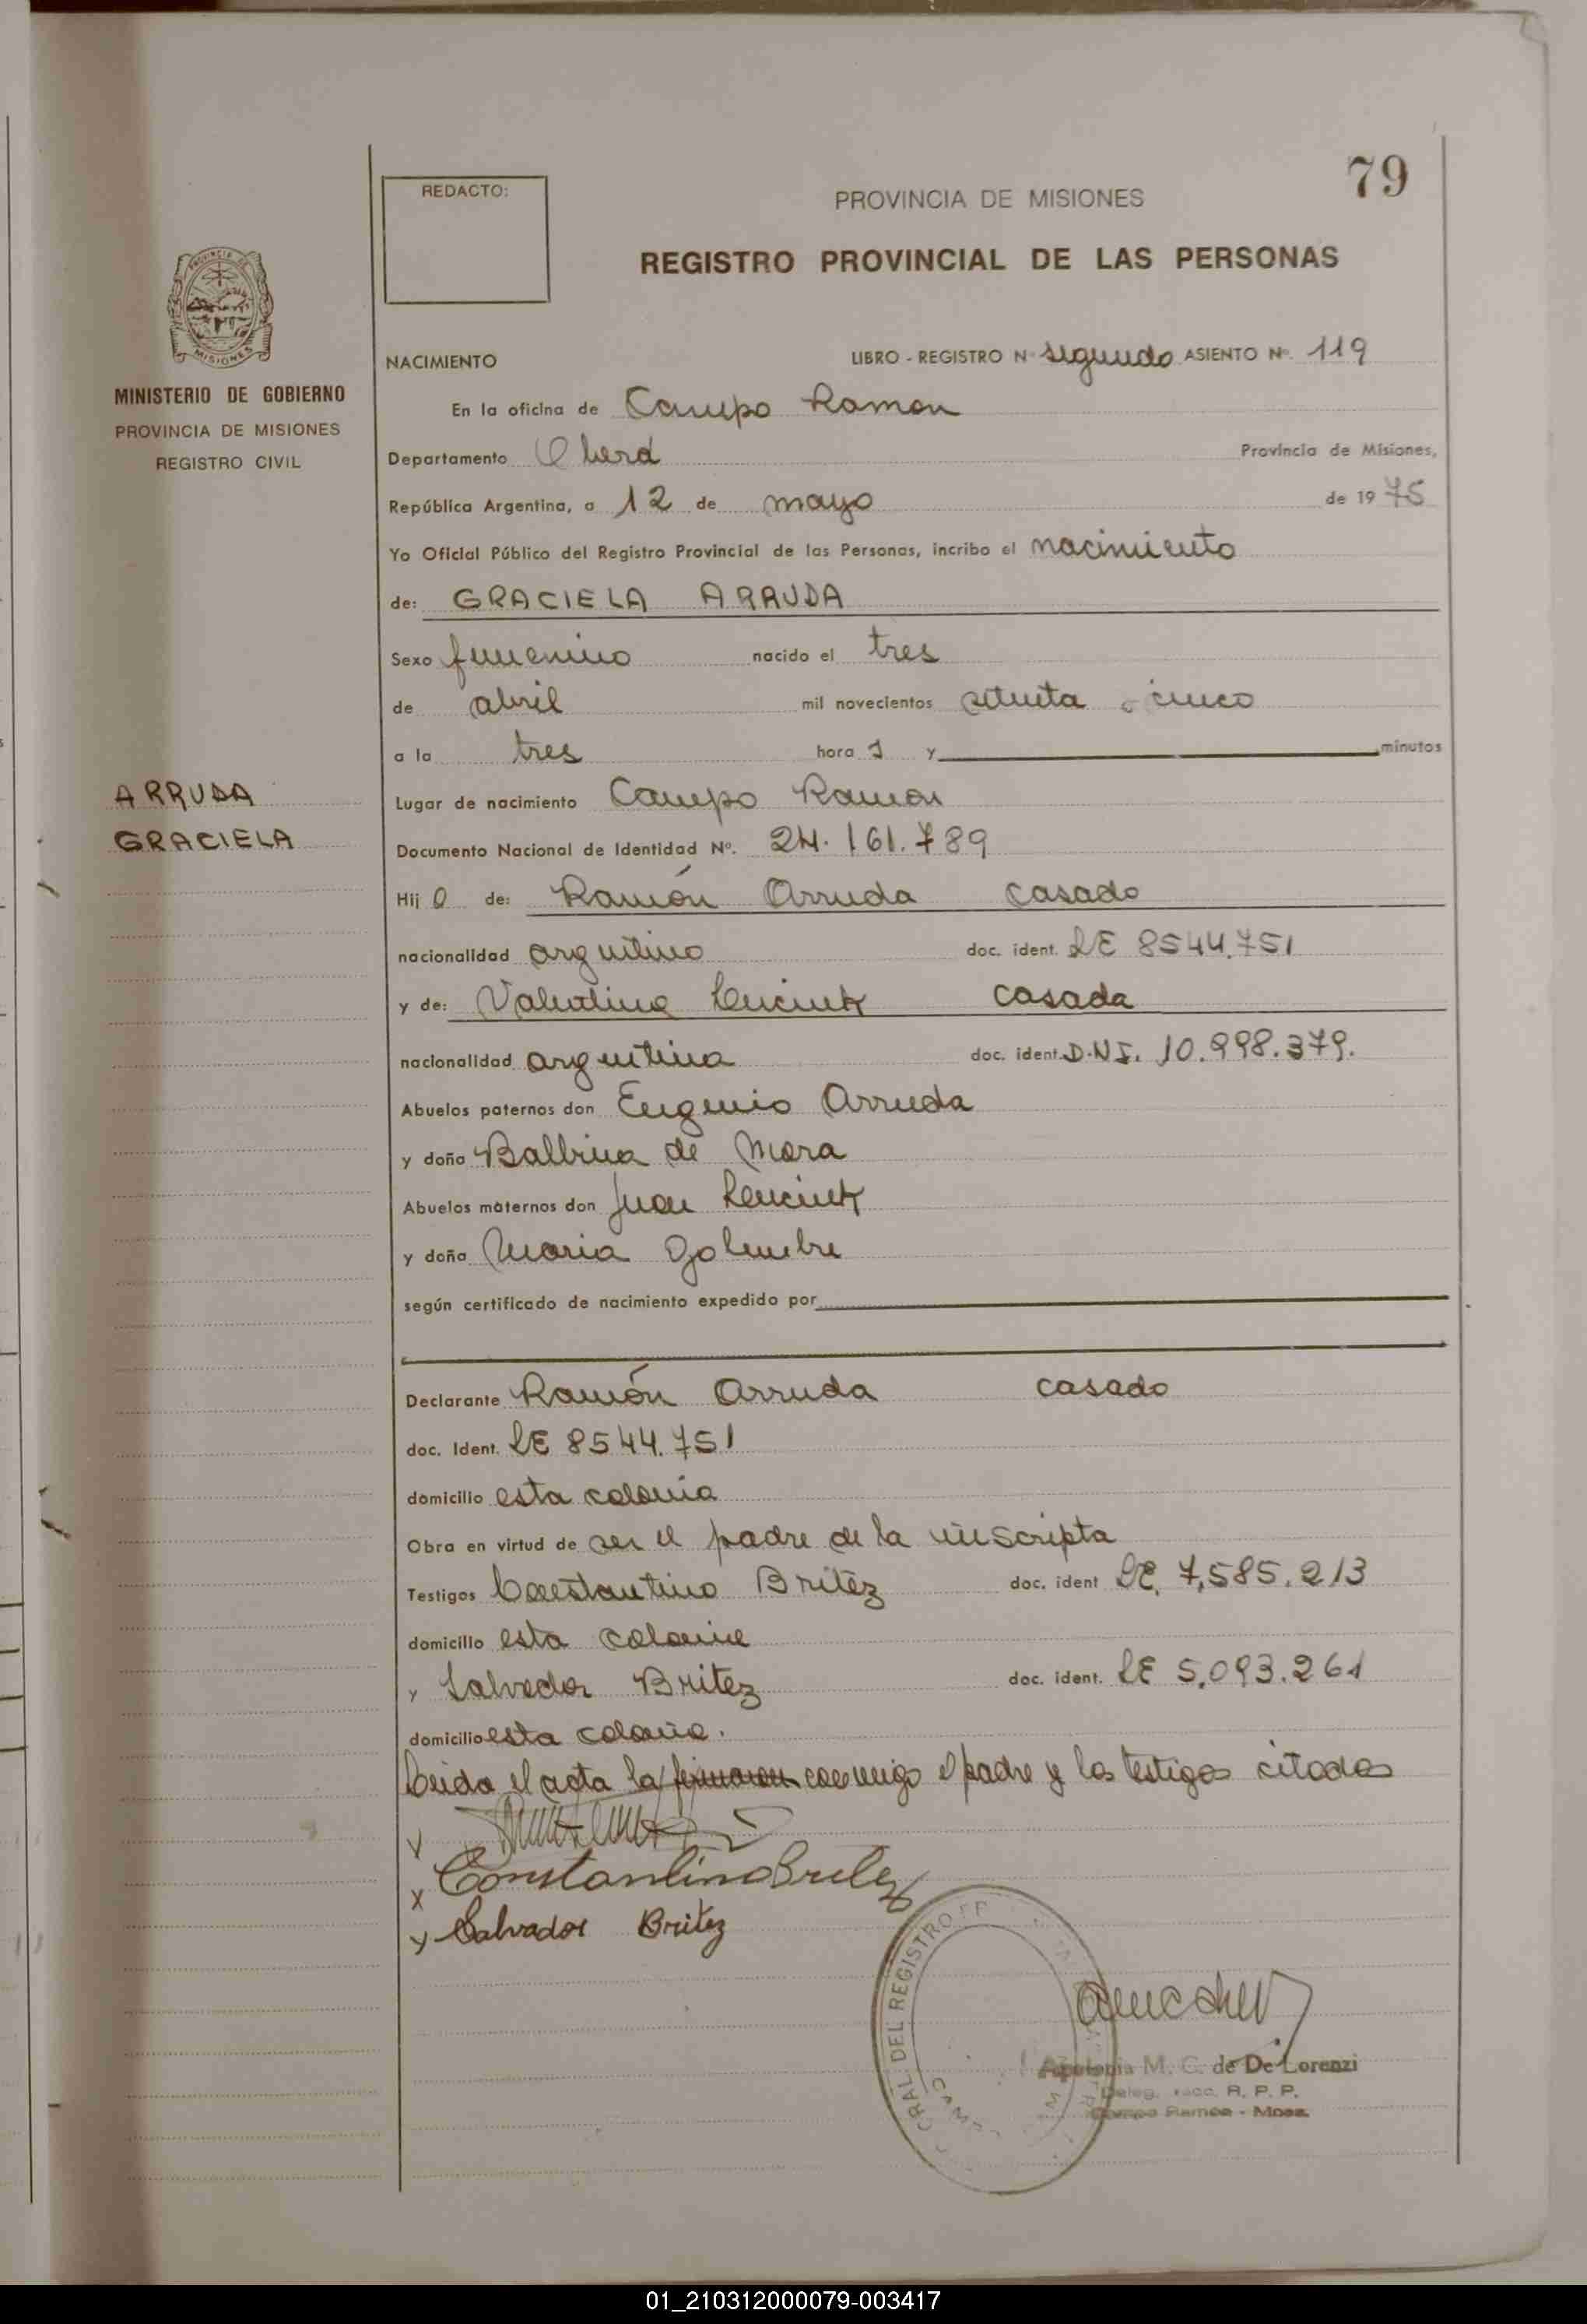 79
REDACTO:
PROVINCIA DE MISIONES
REGISTRO PROVINCIAL DE LAS PERSONAS
PROVINCIA DE
MISIONES
MINISTERIO DE GOBIERNO
PROVINCIA DE MISIONES
REGISTRO CIVIL
NACIMIENTO LIBRO - REGISTRO Nº segundo ASIENTO Nº. 119
En la oficina de Campo Ramon
Departamento Oberá Provincia de Misiones,
República Argentina, a 12 de mayo de 1975
Yo Oficial Público del Registro Provincial de las Personas, incribo el nacimiento
de: GRACIELA ARRUDA
Sexo femenino nacido el tres
de abril mil novecientos setenta y cinco
a la tres hora s y minutos
ARRUDA
GRACIELA
Lugar de nacimiento Campo Ramon
Documento Nacional de Identidad Nº. 24.161.789
Hij a de: Ramón Arruda casado
nacionalidad argentino doc. ident. LE 8544.751
y de: Valentina casada
nacionalidad argentina doc. ident. D.N.I. 10.998.379.
Abuelos paternos don Eugenio Arruda
y doña Balbina de Mora
Abuelos maternos don Juan
y doña Maria
según certificado de nacimiento expedido por
Declarante Ramón Arruda casado
doc. Ident. LE 8544.751
domicilio esta colonia
Obra en virtud de ser el padre de la inscripta
Testigos Constantino Britez doc. ident LE. 7,585.213
domicilio esta colonia
y Salvador Britez doc. ident. LE 5,093.261
domicilio esta colonia.
Leida el acta la firmaron conmigo el padre y los testigos citados
x Constantino Britez
y Salvador Britez
DEL REGISTRO
M. C. de De Lorenzi
Deleg. R. P. P.
Campo Ramon - Mnes.
01_210312000079-003417